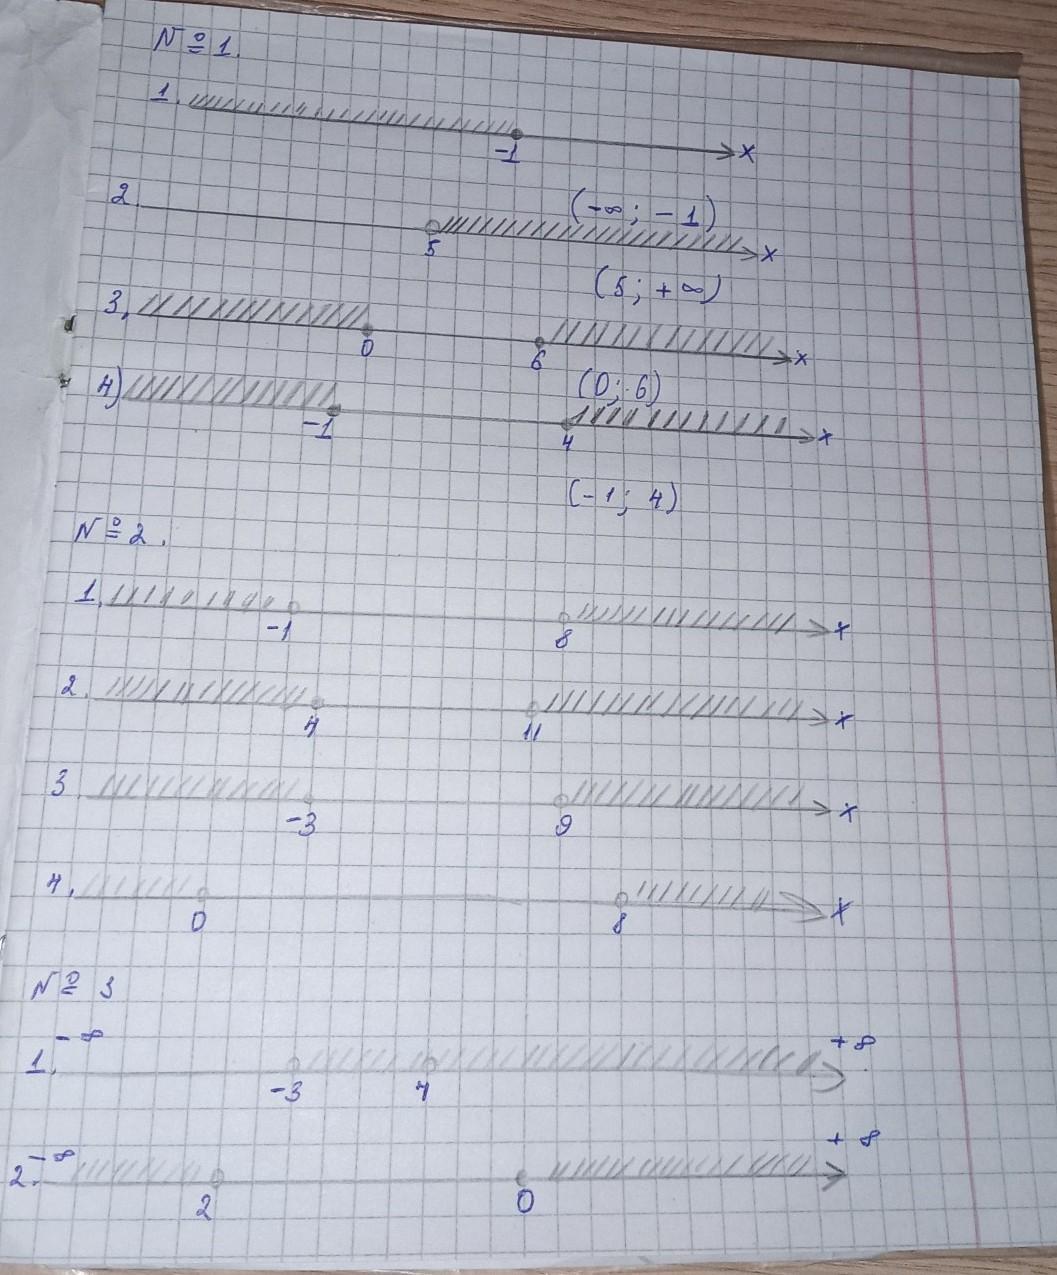 № 1.
1. -1 x
(-∞; -1)
2. 5 x
(5; +∞)
3. 0 6 x
(0; 6)
4) -1 4 x
(-1; 4)
№ 2.
1. -1 8 x
2. 4 11 x
3. -3 9 x
4. 0 8 x
№ 3
-∞ +∞
1. -3 4
-∞ +∞
2. 2 0